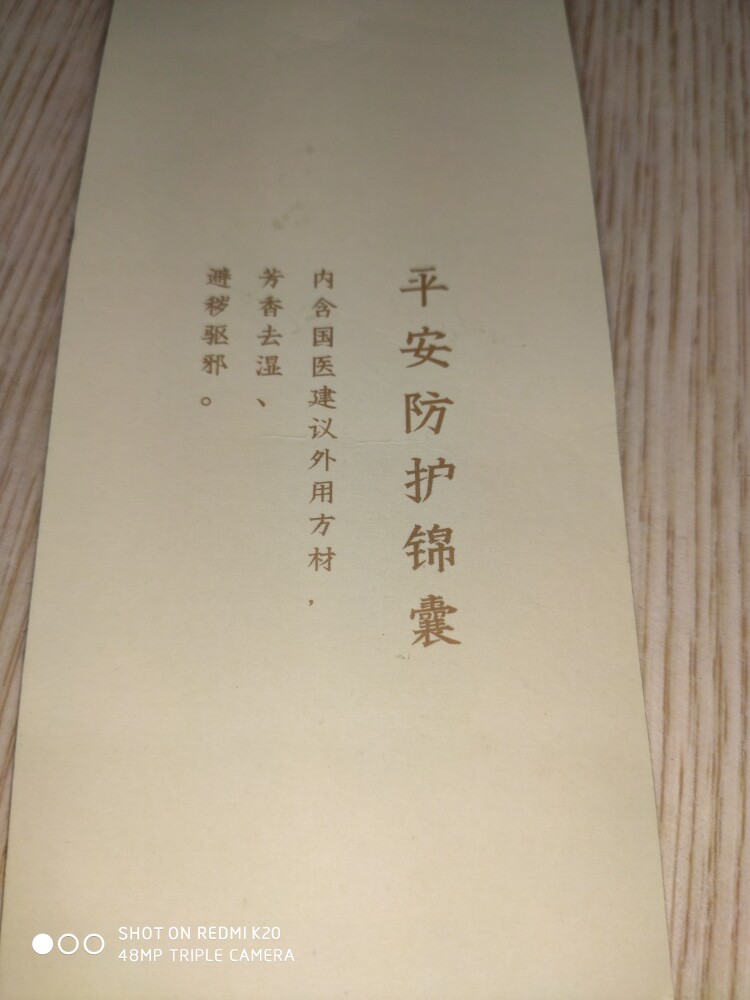 平安防护锦囊
内含国医建议外用方材，
芳香去湿、
避秽驱邪。
SHOT ON REDMI K20
48MP TRIPLE CAMERA